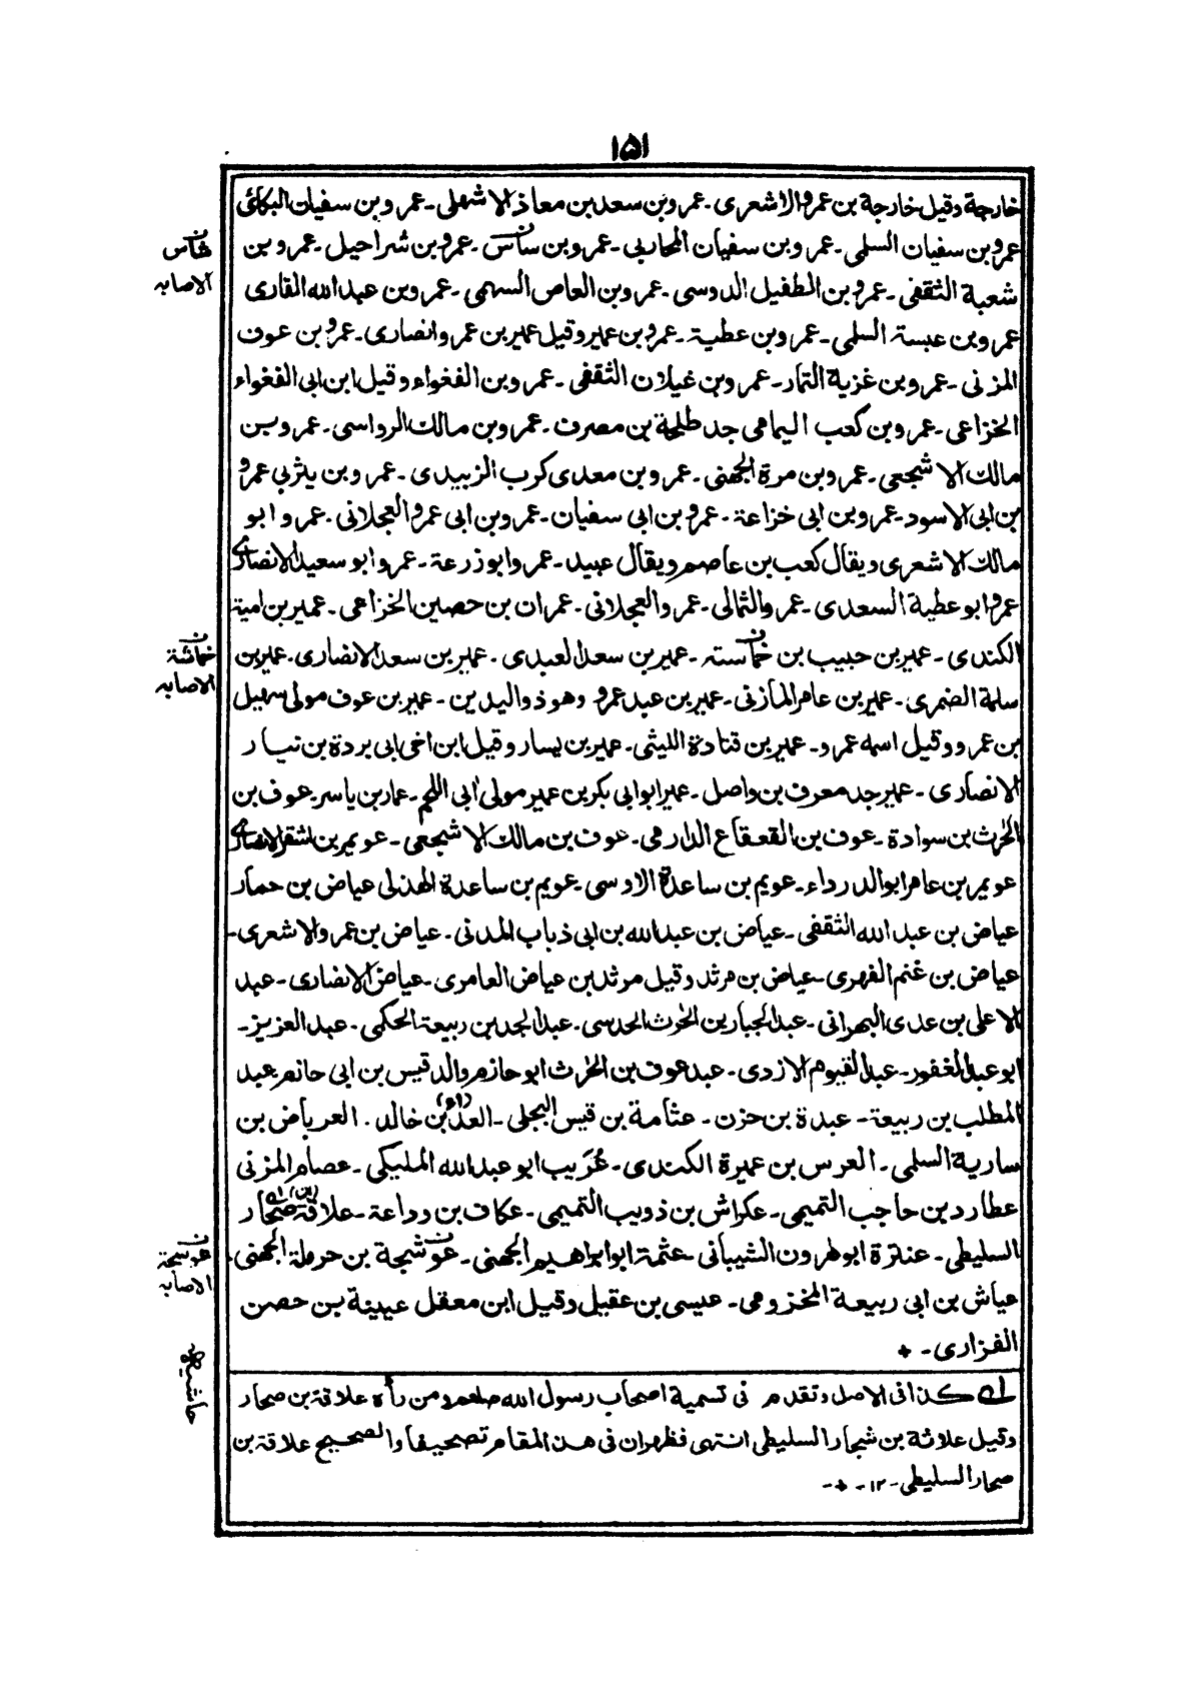 ١٥١
خارجة وقيل خارجة بن عمرو الاشعرى۔ عمرو بن سعد بن معاذ الاشهلى۔ عمرو بن سفيان البكائى
عمرو بن سفيان السلمى۔ عمرو بن سفيان المحاربى۔ عمرو بن ساس۔ عمرو بن شراحيل۔ عمرو بن
شعبة الثقفى۔ عمرو بن الطفيل الدوسى۔ عمرو بن العاص السهمى۔ عمرو بن عبد الله القارى
عمرو بن عبسة السلمى۔ عمرو بن عطية۔ عمرو بن عمير وقيل عمير بن عمرو انصارى۔ عمرو بن عوف
المزنى۔ عمرو بن غزية التمار۔ عمرو بن غيلان الثقفى۔ عمرو بن الفغواء وقيل ابن ابى الفغواء
الخزاعى۔ عمرو بن كعب اليمامى جد طلحة بن مصرف۔ عمرو بن مالك الرواسى۔ عمرو بن
مالك الاشجعى۔ عمرو بن مرة الجهنى۔ عمرو بن معدى كرب الزبيدى۔ عمرو بن يثربى عمرو
بن ابى الاسود۔ عمرو بن ابى خزاعة۔ عمرو بن ابى سفيان۔ عمرو بن ابى عمرو العجلانى۔ عمرو ابو
مالك الاشعرى ويقال كعب بن عاصم ويقال عبيد۔ عمرو ابو زرعة۔ عمرو ابو سعيد الانصارى
عمرو ابو عطية السعدى۔ عمرو الثمالى۔ عمرو العجلانى۔ عمران بن حصين الخزاعى۔ عمير بن امية
الكندى۔ عمير بن حبيب بن خماسته۔ عمير بن سعد العبدى۔ عمير بن سعد الانصارى۔ عمير بن
سلمة الضمرى۔ عمير بن عامر المازنى۔ عمير بن عبد عمرو وهو ذو اليدين۔ عمير بن عوف مولى سهيل
بن عمرو وقيل اسمه عمرو۔ عمير بن قتادة الليثى۔ عمير بن يسار وقيل ابن اخى ابى بردة بن نيار
الانصارى۔ عمير جد معرف بن واصل۔ عمير ابو ابى بكر بن عمير مولى ابى اللحم۔ عمار بن ياسر۔ عوف بن
الحٰرث بن سوادة۔ عوف بن القعقاع الدارمى۔ عوف بن مالك الاشجعى۔ عويمر بن اشقر الانصارى
عويمر بن عامر ابو الدرداء۔ عويم بن ساعدة الاوسى۔ عويم بن ساعدة الهذلى عياض بن حمار
عياض بن عبد الله الثقفى۔ عياض بن عبد الله بن ابى ذباب المدنى۔ عياض بن عمرو الاشعرى۔
عياض بن غنم الفهرى۔ عياض بن مرثد وقيل مرثد بن عياض العامرى۔ عياض الانصارى۔ عبد
الاعلى بن عدى البهرانى۔ عبد الجبار بن الحٰرث الحدسى۔ عبد الجد بن ربيعة الحكمى۔ عبد العزيز۔
ابو عبد الغفور۔ عبد القيوم الازدى۔ عبد عوف بن الحٰرث ابو حازم والد قيس بن ابى حازم۔ عبد
المطلب بن ربيعة۔ عبدة بن حزن۔ عثامة بن قيس البجلى۔ العد(اء) بن خالد۔ العرباض بن
سارية السلمى۔ العرس بن عميرة الكندى۔ عُرَيب ابو عبد الله المليكى۔ عصام المزنى
عطارد بن حاجب التميمى۔ عكراش بن ذويب التميمى۔ عكاف بن وداعة۔ علاقة (بن) صحار
السليطى۔ عنترة ابو هرون الشيبانى۔ عثمة ابو ابراهيم الجهنى۔ عوشجة بن حرملة الجهنى۔
عياش بن ابى ربيعة المخزومى۔ عيسى بن عقيل وقيل ابن معقل عيينة بن حصن
الفزارى۔
شاس
الاصابه
خماشة
الاصابه
عوسجة
الاصابه
حاشيه
له كذا فى الاصل وتقدم فى تسمية اصحاب رسول الله صلعم ومن رأه علاقة بن صحار
وقيل علاثة بن شجار السليطى انتهى فظهر ان فى هذا المقام تصحيفا والصحيح علاقة بن
صحار السليطى۔ ١٢